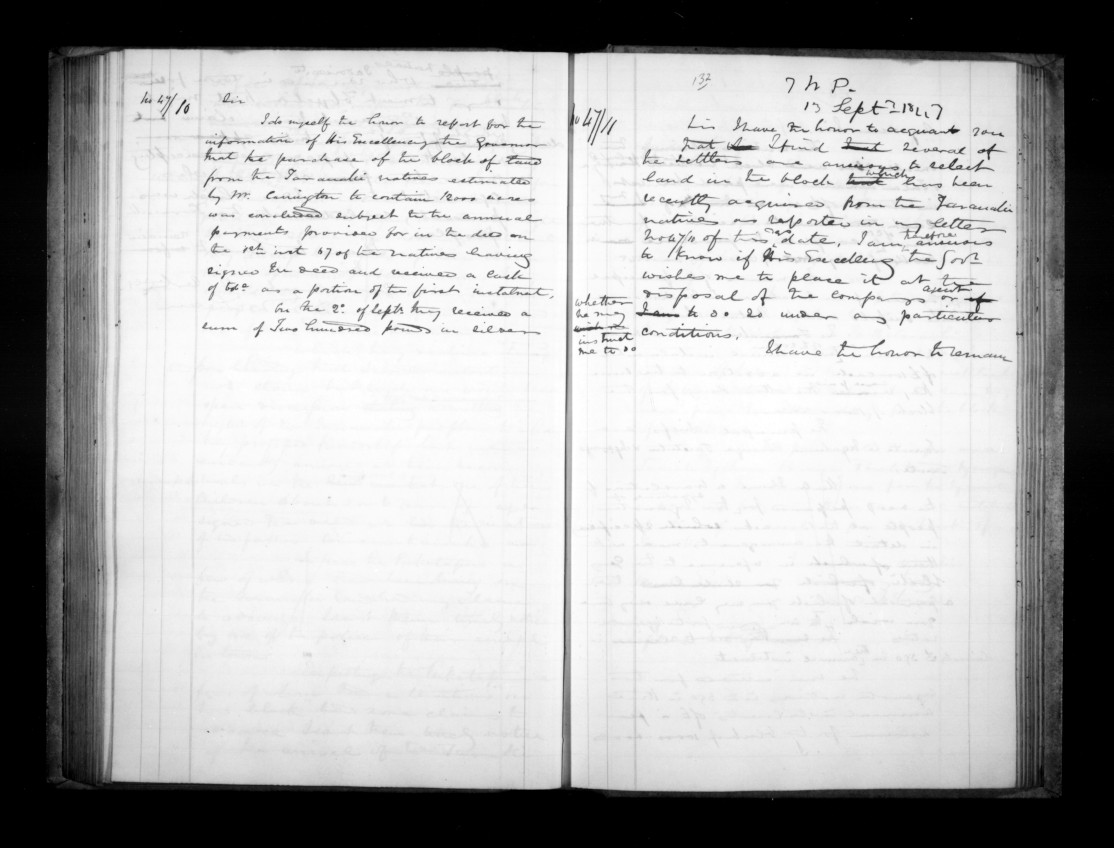 No 47/10
Sir
I do myself the honor to report for the
information of His Excellency the Governor
that the purchase of the block of land
from the Taranaki natives estimated
by Mr. Carrington to contain 12000 acres
was concluded subject to the annual
payments provided for in the deed on
the inst 67 of the natives having
signed the deed and received a cash
of as a portion of the first instalmt.
On the 2d. of Septr. they received a
sum of Two hundred pounds in silver
132
N P.
13 Septr 1847
No 47/11
Sir I have the honor to acquaint you
that I find that several of
the settlers are anxious to select
land in the block which has been
recently acquired from the Taranaki
natives as reported in my letter
No 47/11 of this days date, I am therefore anxious
to know if His Excellency the Govr
wishes me to place it at the
disposal of the companys agent or if
whether
he may
instruct
me to do
I am to do so under any particular
conditions.
I have the honor to remain